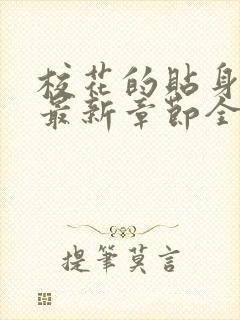 校花的贴身
最新章节全
提筆莫言